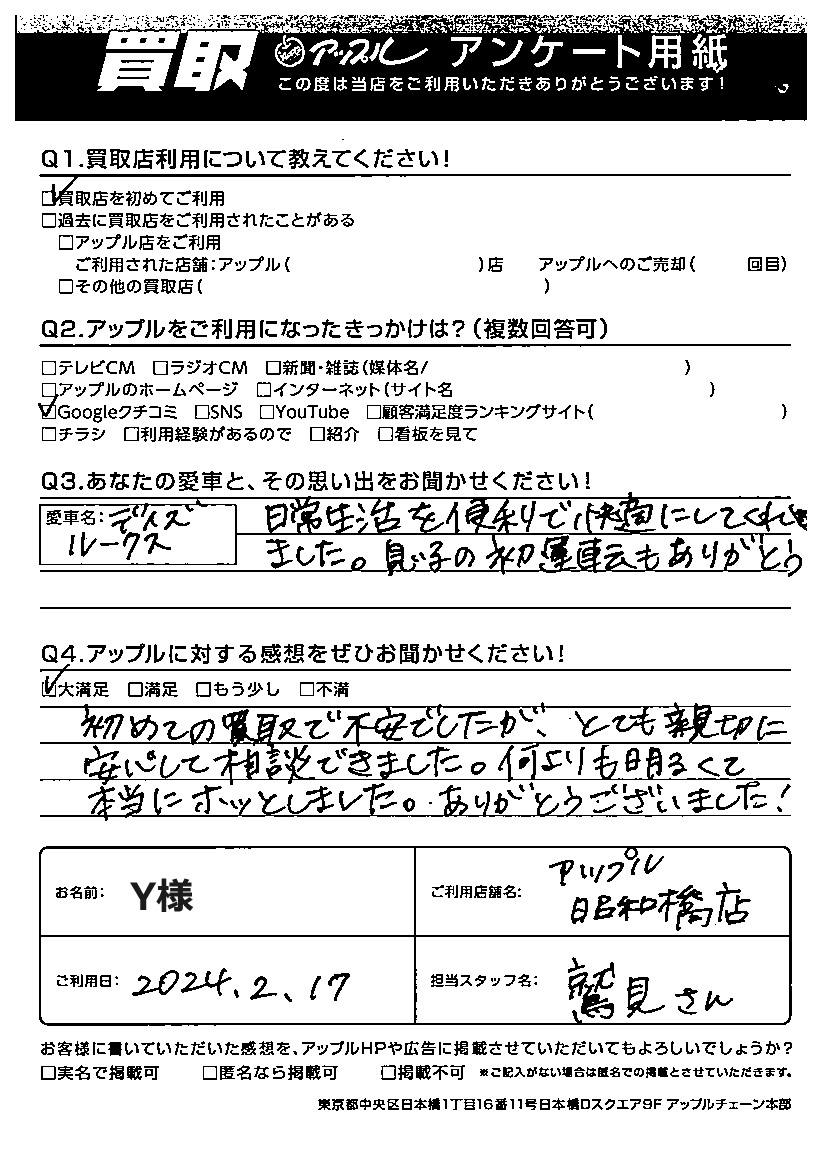 買取 アップル アンケート用紙
この度は当店をご利用いただきありがとうございます!
Q1.買取店利用について教えてください!
☑買取店を初めてご利用
□過去に買取店をご利用されたことがある
□アップル店をご利用
ご利用された店舗:アップル( )店 アップルへのご売却( 回目)
□その他の買取店( )
Q2.アップルをご利用になったきっかけは?(複数回答可)
□テレビCM □ラジオCM □新聞・雑誌(媒体名/ )
□アップルのホームページ □インターネット(サイト名 )
☑Googleクチコミ □SNS □YouTube □顧客満足度ランキングサイト( )
□チラシ □利用経験があるので □紹介 □看板を見て
Q3.あなたの愛車と、その思い出をお聞かせください!
愛車名:デイズ 日常生活を便利で快適にしてくれ
ルークス ました。息子の初運転もありがとう
Q4.アップルに対する感想をぜひお聞かせください!
☑大満足 □満足 □もう少し □不満
初めての買取で不安でしたが、とても親切に
安心して相談できました。何よりも明るくて
本当にホッとしました。ありがとうございました!
お名前: Y様 ご利用店舗名: アップル
昭和橋店
ご利用日: 2024.2.17 担当スタッフ名: 鷲見さん
お客様に書いていただいた感想を、アップルHPや広告に掲載させていただいてもよろしいでしょうか?
□実名で掲載可 □匿名なら掲載可 □掲載不可 ※ご記入がない場合は匿名での掲載とさせていただきます。
東京都中央区日本橋1丁目16番11号日本橋Dスクエア9F アップルチェーン本部